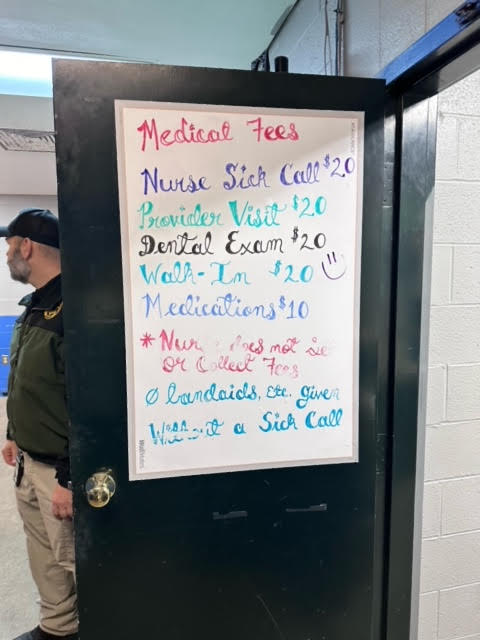 Medical Fees
Nurse Sick Call $20
Provider Visit $20
Dental Exam $20
Walk-In $20
Medications $10
* does not
or Collect Fees
Ø bandaids, etc. given
a Sick Call